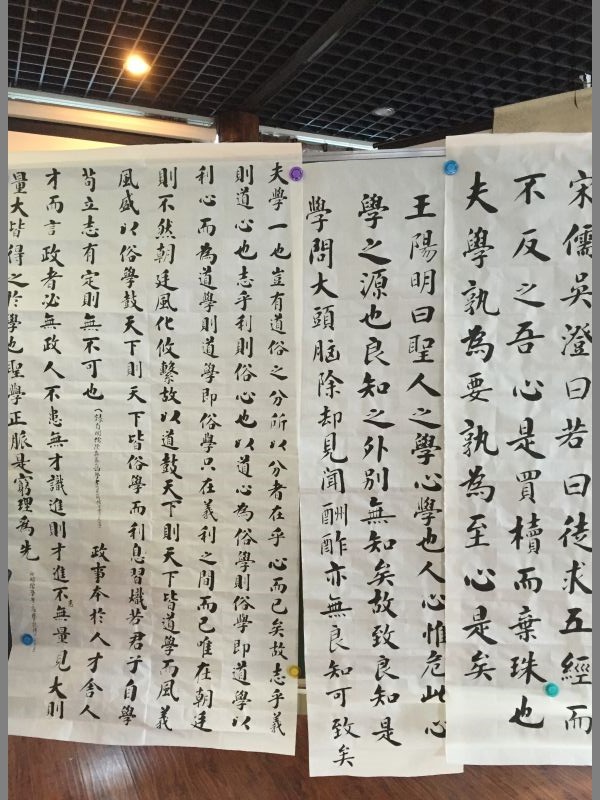 宋儒吳澄曰若曰徒求五經而
不反之吾心是買櫝而棄珠也
夫學孰為要孰為至心是矣
王陽明曰聖人之學心學也人心惟危此心
學之源也良知之外別無知矣故致良知是
學問大頭腦除却見聞酬酢亦無良知可致矣
夫學一也豈有道俗之分所以分者在乎心而已矣故志乎義
則道心也志乎利則俗心也以道心為俗學則俗學即道學以
利心而為道學則道學即俗學只在義利之間而已唯在朝廷
則不然朝廷風化攸繫故以道鼓天下則天下皆道學而風義
風盛以俗學鼓天下則天下皆俗學而利息習熾若君子自學
苟立志有定則無不可也
政事本於人才舍人
才而言政者必無政人不患無才識進則才進不無量見大則
量大皆得之於學也聖學正脈是窮理為先